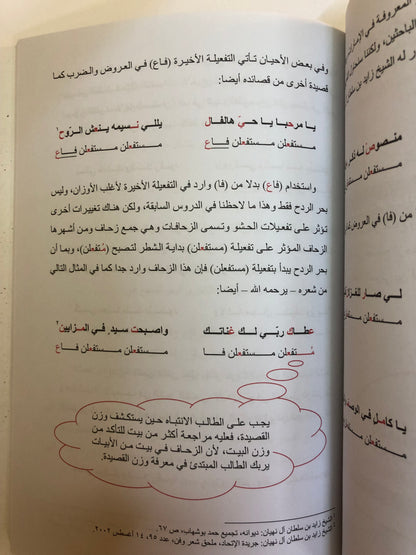 المعروفة في الإمارات
الباحثين، ولكننا سنحتار
له الشيخ زايد بن سلطان
منصوص له
مستفعلن
من (فا) في العروض
لي صار
مستفعلن
يا كامل في الوصف
مستفعلن
وفي بعض الأحيان تأتي التفعيلة الأخيرة (فاع) في العروض والضرب كما
قصيدة أخرى من قصائده أيضا:
يا مرحبا يا حيّ هالفال يللي نسيمه ينعش الرّوح١
مستفعلن مستفعلن فاع مستفعلن مستفعلن فاع
واستخدام (فاع) بدلا من (فا) وارد في التفعيلة الأخيرة لأغلب الأوزان، وليس
بحر الردح فقط وهذا ما لاحظنا في الدروس السابقة، ولكن هناك تغييرات أخرى
تؤثر على تفعيلات الحشو وتسمى الزحافات وهي جمع زحاف ومن أشهرها
الزحاف المؤثر على تفعيلة (مستفعلن) بداية الشطر لتصبح (مُتفعلن)، وبما أن
بحر الردح يبدأ بتفعيلة (مستفعلن) فإن هذا الزحاف وارد جدا كما في المثال التالي
من شعره – يرحمه الله – أيضا:
عطاك ربّي لك غناتك واصبحت سيد في المزابين٢
مُتفعلن مستفعلن فا مستفعلن مستفعلن فاع
يجب على الطالب الانتباه حين يستكشف وزن
القصيدة، فعليه مراجعة أكثر من بيت للتأكد من
وزن البيت، لأن الزحاف في بيت من الأبيات
يربك الطالب المبتدئ في معرفة وزن القصيدة.
١ الشيخ زايد بن سلطان آل نهيان: ديوانه، تجميع حمد بوشهاب، ص ٦٧.
٢ الشيخ زايد بن سلطان آل نهيان: جريدة الإتحاد، ملحق شعر وفن، عدد ٩٥، ١٤ أغسطس ٢٠٠٢.